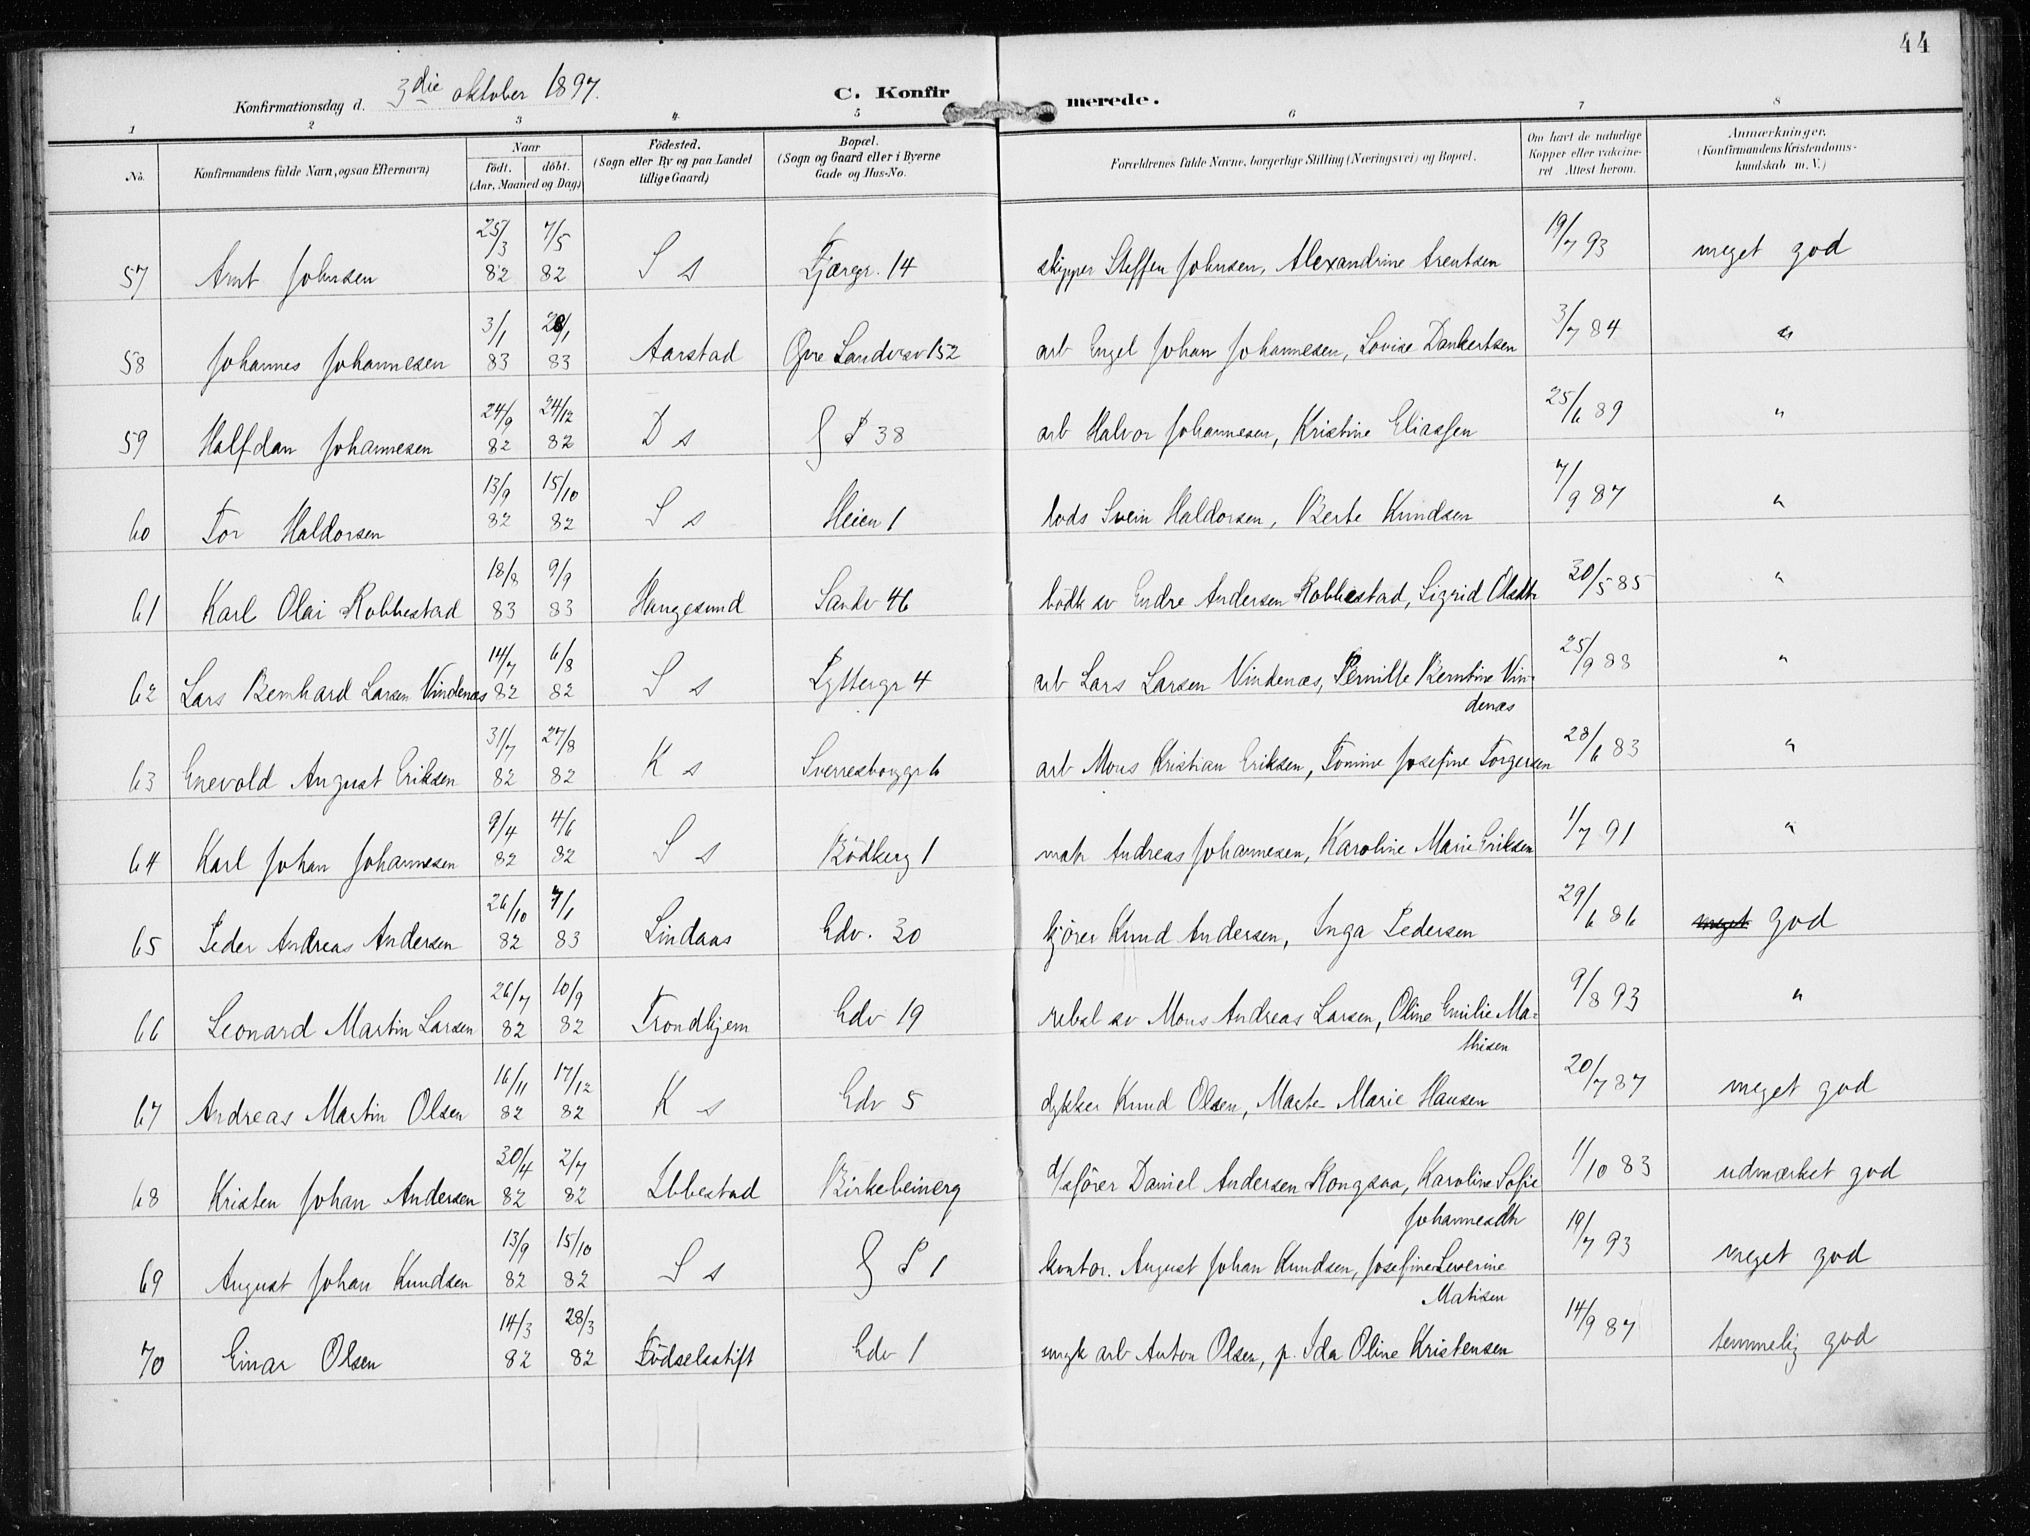 44
Konfirmationsdag d. 3die oktober 1897.
C. Konfir merede.
1 2 3 4 5 6 7 8
No. Konfirmandens fulde Navn, ogsaa Efternavn) Naar födt. döbt. (Aar, Maaned og Dag) Födested. (Sogn eller By og paa Landet tillige Gaard) Bopæl. (Sogn og Gaard eller i Byerne Gade og Hus-No. Forældrenes fulde Navne, borgerlige Stilling (Næringsvei) og Bopæl. Om havt de naturlige Kopper eller vakcineret Attest herom. Anmærkninger. (Konfirmandens Kristendomskundskab m. V.)
57 Arnt Johnsen 25/3 82 7/5 82 S s Tjærgr. 14 skipper Steffen Johnsen, Alexandrine Arentsen 19/7 93 meget god
58 Johannes Johannesen 3/1 83 28/1 83 Aarstad Øvre Sandvsv 152 arb Engel Johan Johannesen, Lovise Dankertsen 3/7 84 "
59 Halfdan Johannesen 24/9 82 24/12 82 D s P 38 arb Halvor Johannesen, Kristine Eliassen 25/6 89 "
60 Tor Haldorsen 13/9 82 15/10 82 S s Heien 1 lods Svein Haldorsen, Berte Knudsen 7/9 87 "
61 Karl Olai Robbestad 18/8 83 9/9 83 Haugesund Sandv 46 bödk sv Endre Andersen Robbestad, Sigrid Olsdtr 30/5 85 "
62 Lars Bernhard Larsen Vindenæs 14/7 82 6/8 82 S s Lyttergr 4 arb Lars Larsen Vindenæs, Pernille Berntine Vin-
denæs 25/9 88 "
63 Enevold August Eriksen 31/7 82 27/8 82 K s Sverresborggr 6 arb Mons Kristian Eriksen, Tomine Josefine Torgersen 28/6 83 "
64 Karl Johan Johannesen 9/4 82 4/6 82 S s Bödkerg 1 matr Andreas Johannesen, Karoline Marie Eriksen 1/7 91 "
65 Peder Andreas Andersen 26/10 82 7/1 83 Lindaas Edv. 30 kjörer Knud Andersen, Inga Pedersen 29/6 86 meget god
66 Leonard Martin Larsen 26/7 82 10/9 82 Trondhjem Edv 19 rebsl sv Mons Andreas Larsen, Oline Emilie Ma-
thisen 9/8 93 "
67 Andreas Martin Olsen 16/11 82 17/12 82 K s Edv 5 dykker Knud Olsen, Marte Marie Hansen 20/7 87 meget god
68 Kristen Johan Andersen 30/4 82 2/7 82 Ibbestad Birkebeinerg d/sförer Daniel Andersen Kongsaa, Karoline Sofie
Johannesdtr 1/10 83 udmærket god
69 August Johan Knudsen 13/9 82 15/10 82 S s P 1 kontor. August Johan Knudsen, Josefine Severine
Matisen 19/7 93 meget god
70 Einar Olsen 14/3 82 28/3 82 Födselsstift Edv 1 ungk arb Anton Olsen, p. Ida Oline Kristensen 14/9 87 temmelig god